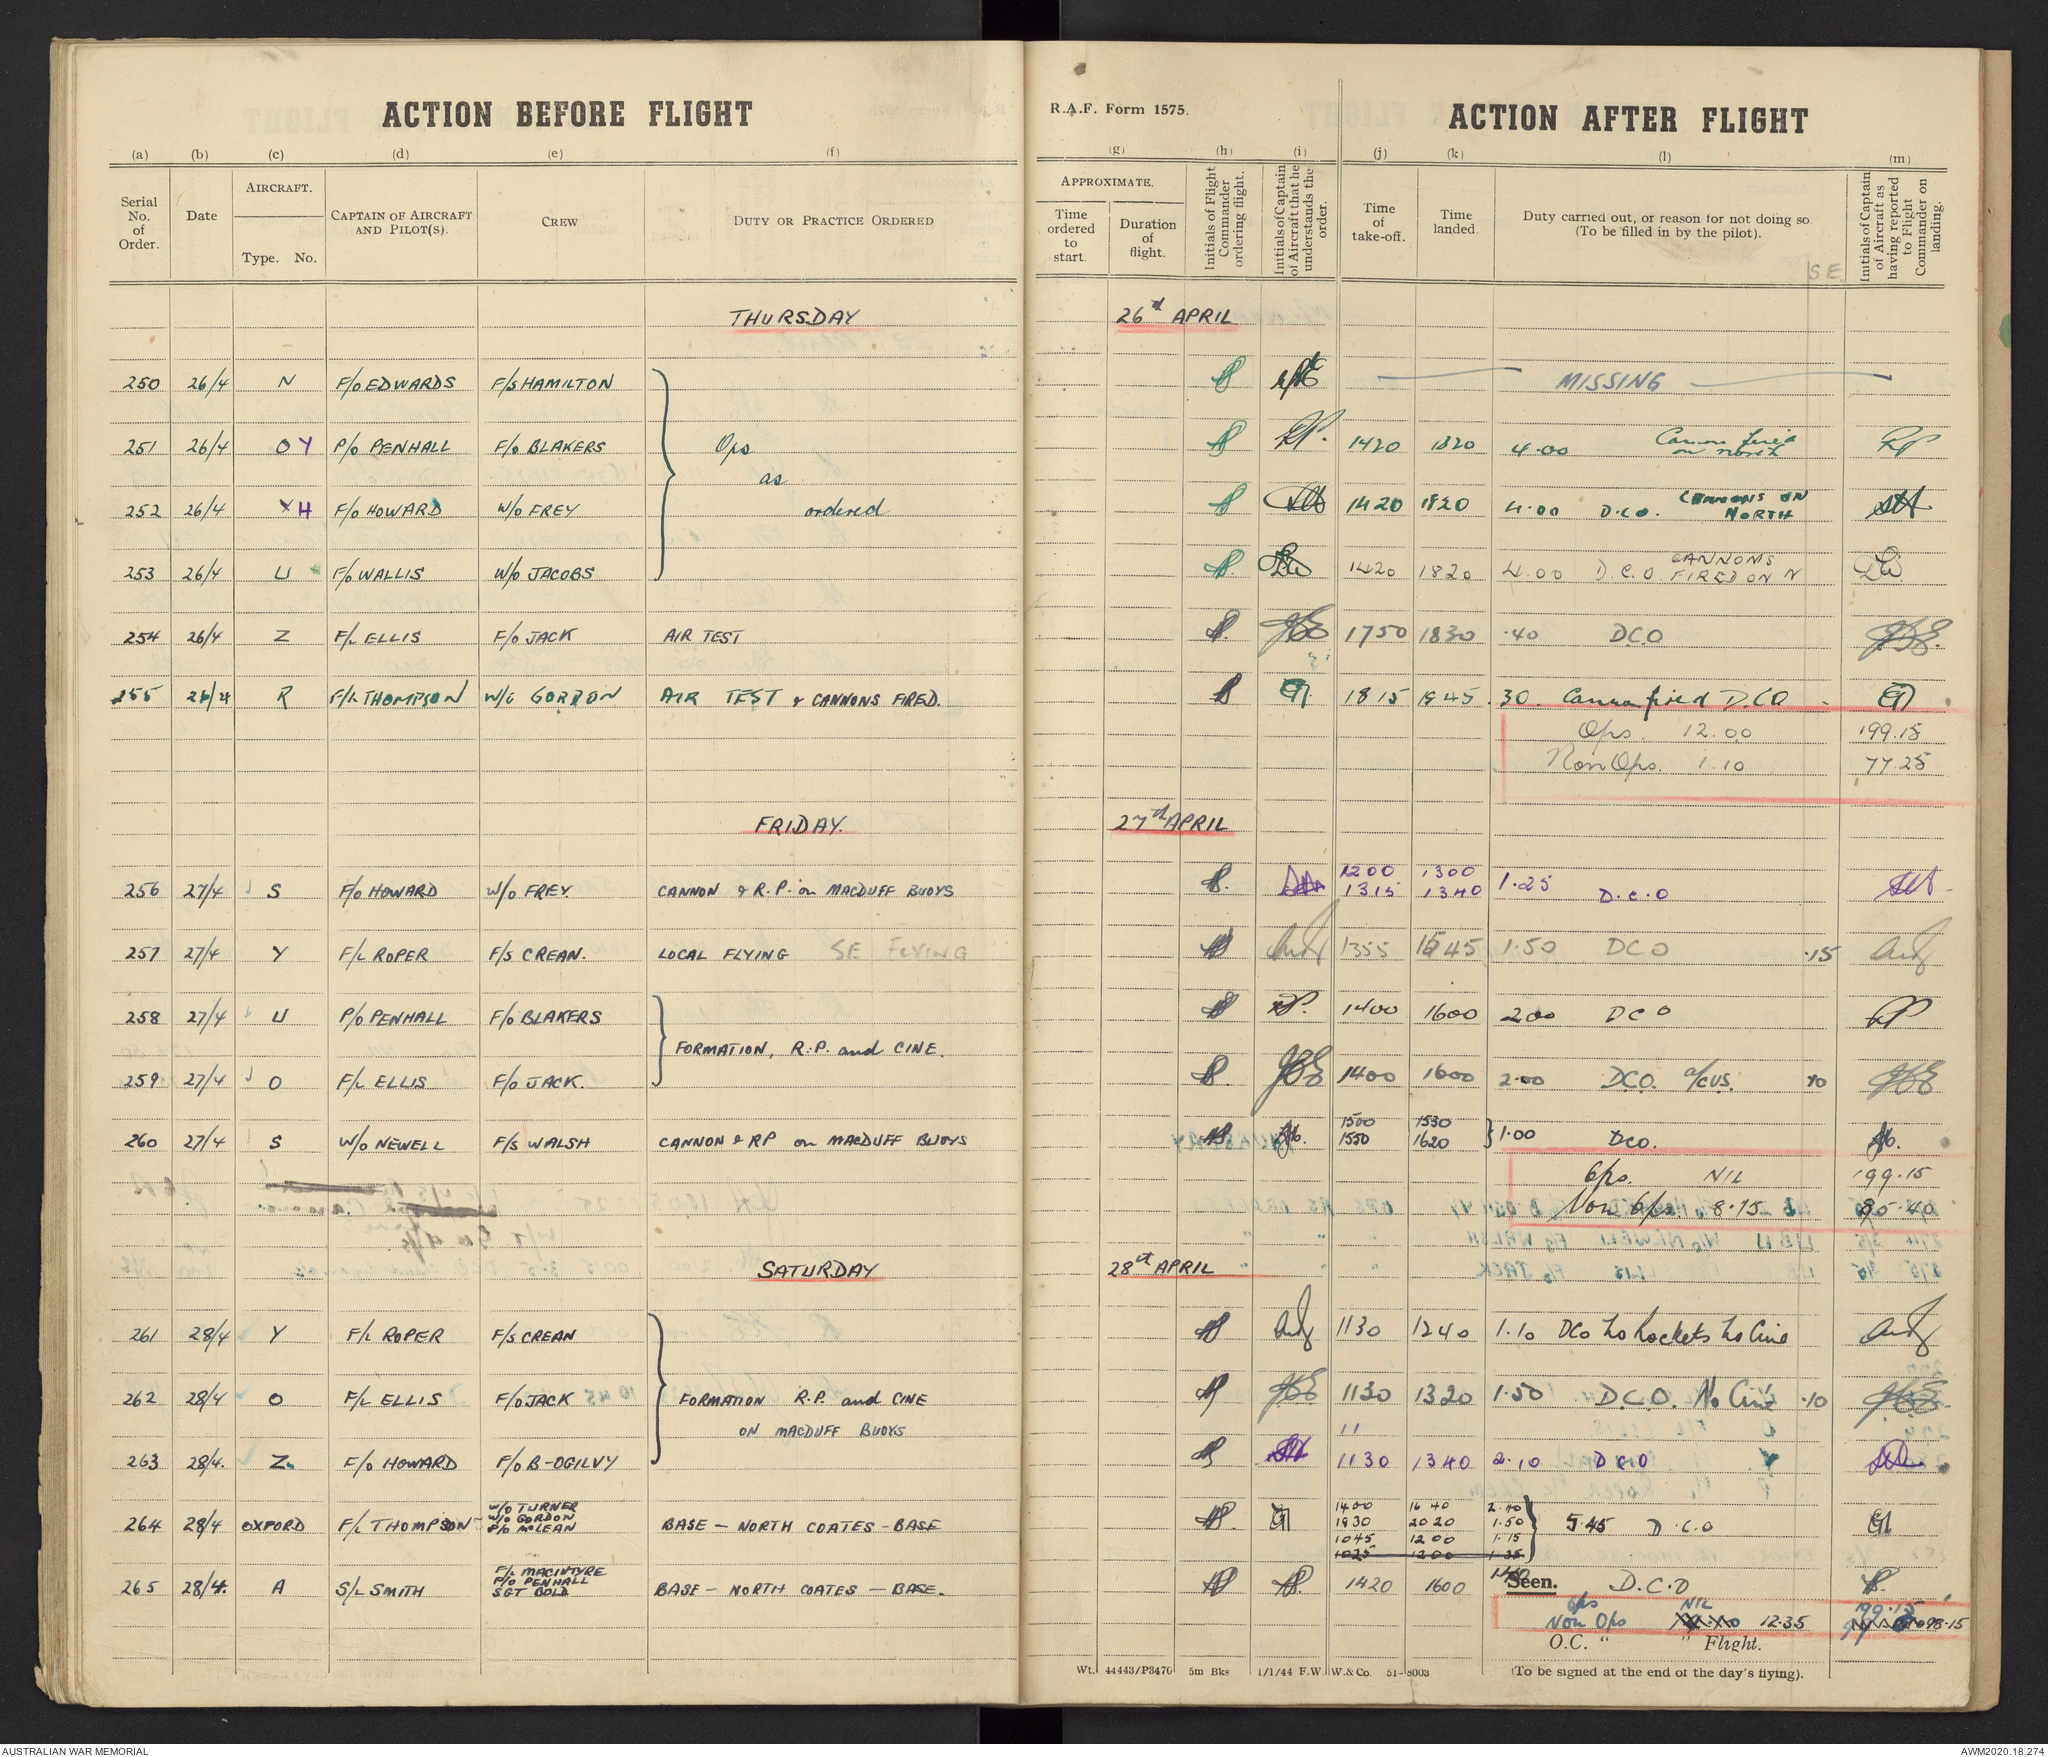 ACTION BEFORE FLIGHT
R.A.F. Form 1575.
ACTION AFTER FLIGHT
(a) (b) (c) (d) (e) (f) (g) (h) (i) (j) (k) (l) (m)
Serial No. of Order.
Date
AIRCRAFT.
Type. No.
CAPTAIN OF AIRCRAFT AND PILOT(S).
CREW
DUTY OR PRACTICE ORDERED
APPROXIMATE.
Time ordered to start.
Duration of flight.
Initials of Flight Commander ordering flight.
Initials of Captain of Aircraft that he understands the order.
Time of take-off.
Time landed.
Duty carried out, or reason for not doing so (To be filled in by the pilot).
SE
Initials of Captain of Aircraft as having reported to Flight Commander on landing.
THURSDAY 26th APRIL
250 26/4 N F/O EDWARDS F/S HAMILTON MISSING
251 26/4 O Y P/O PENHALL F/O BLAKERS Ops 1420 1820 4.00 Cannon fired on north RP
252 26/4 Y H F/O HOWARD W/O FREY as ordered 1420 1820 4.00 D.C.O. CANNONS ON NORTH
253 26/4 U F/O WALLIS W/O JACOBS 1420 1820 4.00 D.C.O CANNONS FIRED ON N
254 26/4 Z F/L ELLIS F/O JACK AIR TEST 1750 1830 .40 DCO
255 26/4 R F/L THOMPSON W/O GORDON AIR TEST & CANNONS FIRED. 1815 1845 .30. Cannon fired D.C.O
Ops. 12.00 199.15
Non Ops. 1.10 77.25
FRIDAY. 27th APRIL
256 27/4 S F/O HOWARD W/O FREY. CANNON & R.P. on MACDUFF BUOYS 1200 1300
1315 1340 1.25 D.C.O
257 27/4 Y F/L ROPER F/S CREAN. LOCAL FLYING SE FLYING 1355 1545 1.50 DCO .15
258 27/4 U P/O PENHALL F/O BLAKERS 1400 1600 2.00 DCO RP
FORMATION, R.P. and CINE.
259 27/4 O F/L ELLIS F/O JACK. 1400 1600 2.00 DCO. a/cus. 10
260 27/4 S W/O NEWELL F/S WALSH CANNON & RP on MACDUFF BUOYS 1500 1530
1550 1620 1.00 DCO.
Ops. NIL 199.15
Non Ops. 8.15 85.40
SATURDAY 28st APRIL
261 28/4 Y F/L ROPER F/S CREAN 1130 1240 1.10 DCO No Rockets No Cine
262 28/4 O F/L ELLIS F/O JACK FORMATION R.P. and CINE 1130 1320 1.50 D.C.O. No Cine .10
ON MACDUFF BUOYS 11
263 28/4. Z F/O HOWARD F/O B-OGILVY 1130 1340 2.10 DCO
264 28/4 OXFORD F/L THOMPSON W/O TURNER W/O GORDON F/O McLEAN BASE — NORTH COATES - BASE 1400 1640 2.40
1830 2020 1.50 5.45 D.C.O
1045 1200 1.15
1025 1200 1.35
265 28/4. A S/L SMITH F/L MACINTYRE P/O PENHALL SGT BOLD BASE — NORTH COATES — BASE. 1420 1600 1.40 Seen. D.C.O
Ops NIL 199.15
Non Ops 12.35 98.15
O.C. " " Flight.
Wt. 44443/P3470 5m Bks 1/1/44 F.W W.& Co. 51-8003
(To be signed at the end of the day's flying).
AUSTRALIAN WAR MEMORIAL
AWM2020.18.274